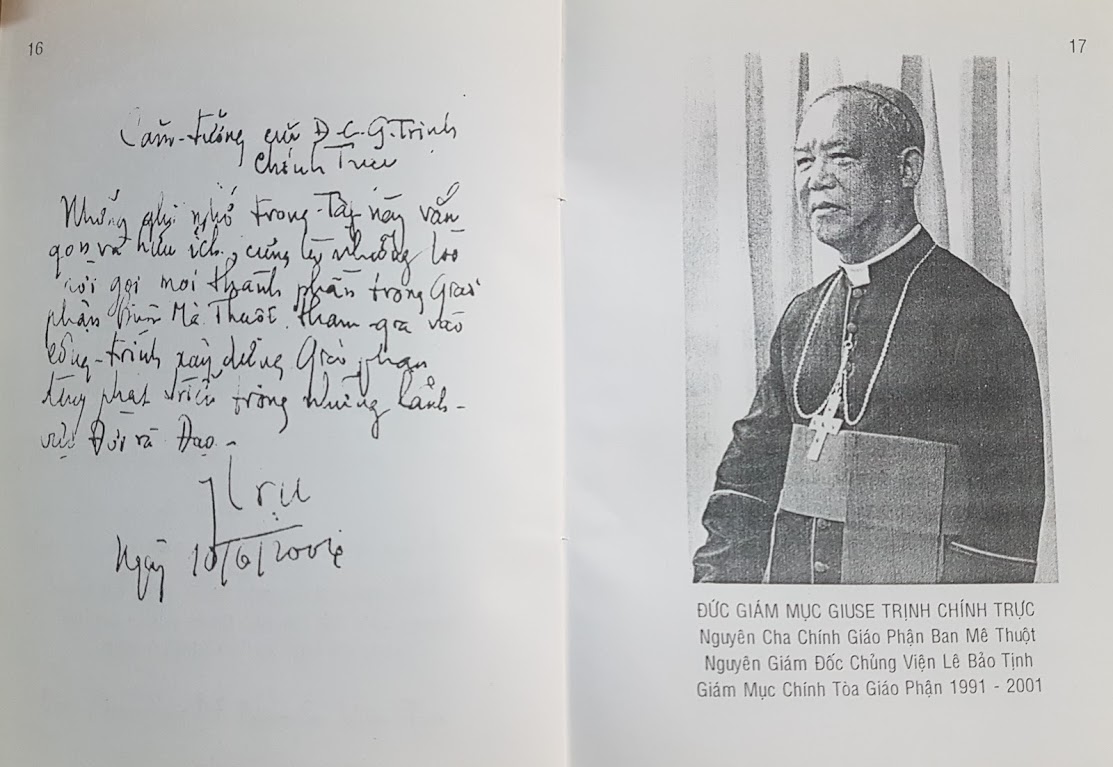 16
Cảm-tưởng của Đ.C.G. Trịnh
Chính Trực
Những ghi nhớ trong Tập này vắn
gọn và hữu ích, cũng là những lời
gọi mọi thành phần trong Giáo
phận Buôn Mà Thuôt tham-gia vào
công-trình xây dựng Giáo phận
phát triển trong những lãnh-
vực Đời và Đạo.-
Trực
Ngày 10/6/2004
17
ĐỨC GIÁM MỤC GIUSE TRỊNH CHÍNH TRỰC
Nguyên Cha Chính Giáo Phận Ban Mê Thuột
Nguyên Giám Đốc Chủng Viện Lê Bảo Tịnh
Giám Mục Chính Tòa Giáo Phận 1991 - 2001